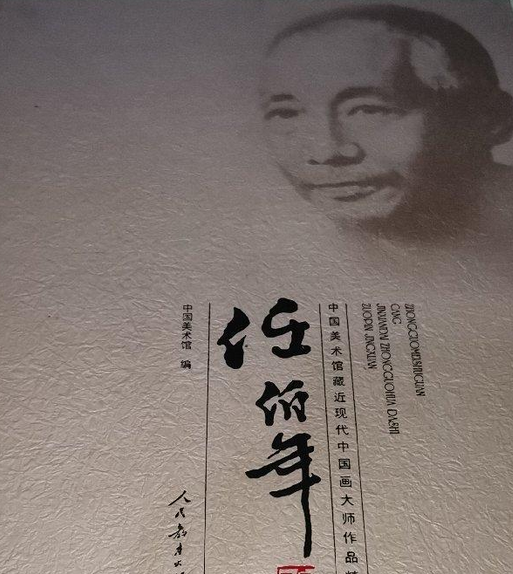 ZHONGGUOMEISHUGUAN
CANG
JINXIANDAI ZHONGGUOHUA DASHI
ZUOPIN JINGXUAN
中国美术馆藏近现代中国画大师作品精
任伯年
中国美术馆 编
人民教育出